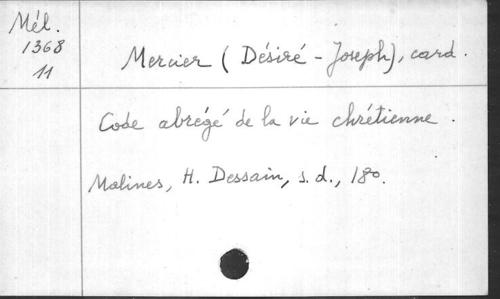 Mél.
1368
11
Mercier (Désiré - Joseph), card.
Code abrégé de la vie chrétienne.
Malines, H. Dessain, s.d., 18º.